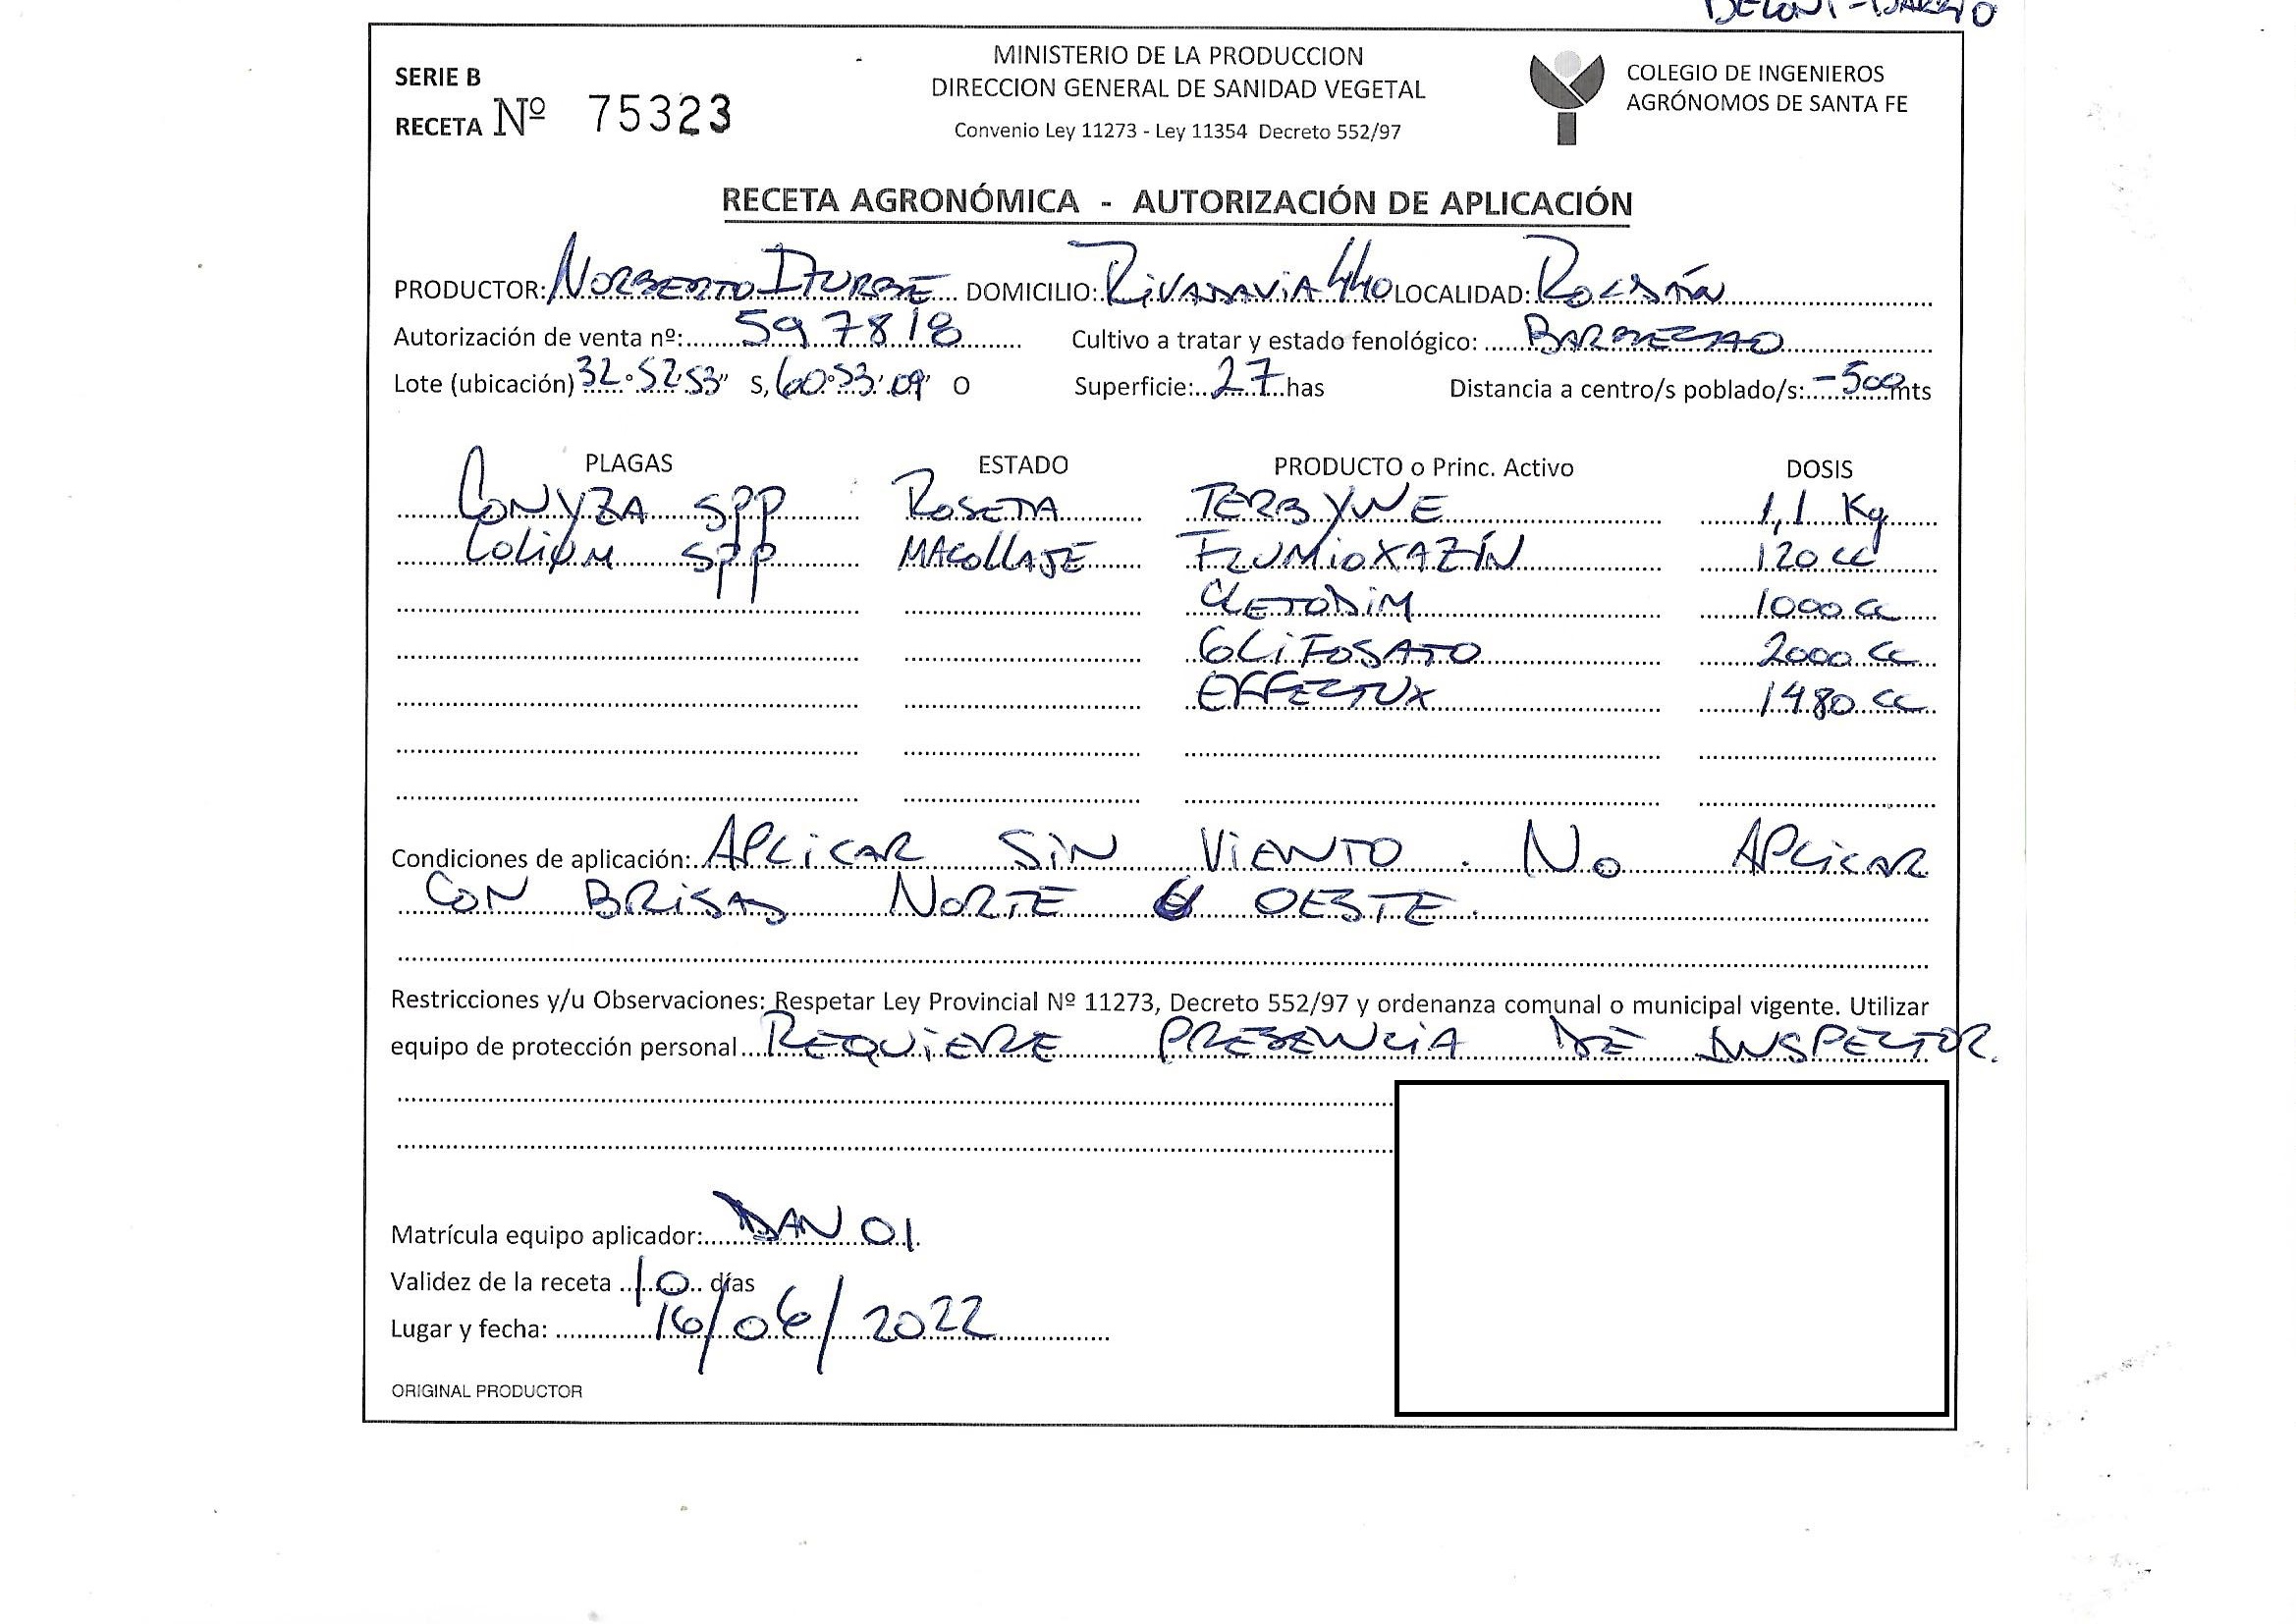 SERIE B
RECETA Nº 75323
MINISTERIO DE LA PRODUCCION
DIRECCION GENERAL DE SANIDAD VEGETAL
Convenio Ley 11273 - Ley 11354 Decreto 552/97
COLEGIO DE INGENIEROS
AGRÓNOMOS DE SANTA FE
RECETA AGRONÓMICA - AUTORIZACIÓN DE APLICACIÓN
PRODUCTOR: NORBERTO ITURBE DOMICILIO: RIVADAVIA 440 LOCALIDAD: ROLDÁN
Autorización de venta nº: 597818 Cultivo a tratar y estado fenológico: BARBECHO
Lote (ubicación) 32°52'53" S, 60°53'09" O Superficie: 27 has Distancia a centro/s poblado/s: -500 mts
PLAGAS ESTADO PRODUCTO o Princ. Activo DOSIS
CONYZA SPP ROSETA TERBYNE 1,1 Kg
LOLIUM SPP MACOLLAJE FLUMIOXAZÍN 120 cc
CLETODIM 1000 cc
GLIFOSATO 2000 cc
EFFECTUX 1480 cc
Condiciones de aplicación: APLICAR SIN VIENTO. NO APLICAR
CON BRISAS NORTE OESTE.
Restricciones y/u Observaciones: Respetar Ley Provincial Nº 11273, Decreto 552/97 y ordenanza comunal o municipal vigente. Utilizar
equipo de protección personal REQUIERE PRESENCIA DE INSPECTOR.
Matrícula equipo aplicador: DAN 01
Validez de la receta 10 días
Lugar y fecha: 16/06/2022
ORIGINAL PRODUCTOR